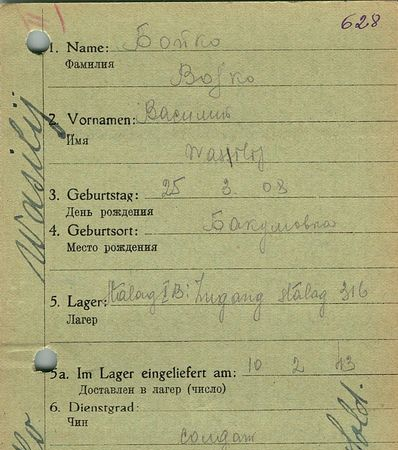 628
1. Name: Бойко
Фамилия
Bojko
2. Vornamen: Василий
Имя
Wassilij
3. Geburtstag: 25 3. 08
День рождения
4. Geburtsort: Бакумовка
Место рождения
5. Lager: Stalag I B; Zugang Stalag 316
Лагер
5a. Im Lager eingeliefert am: 10 2 43
Доставлен в лагер (число)
6. Dienstgrad:
Чин
солдат
Wasilij
Sold.